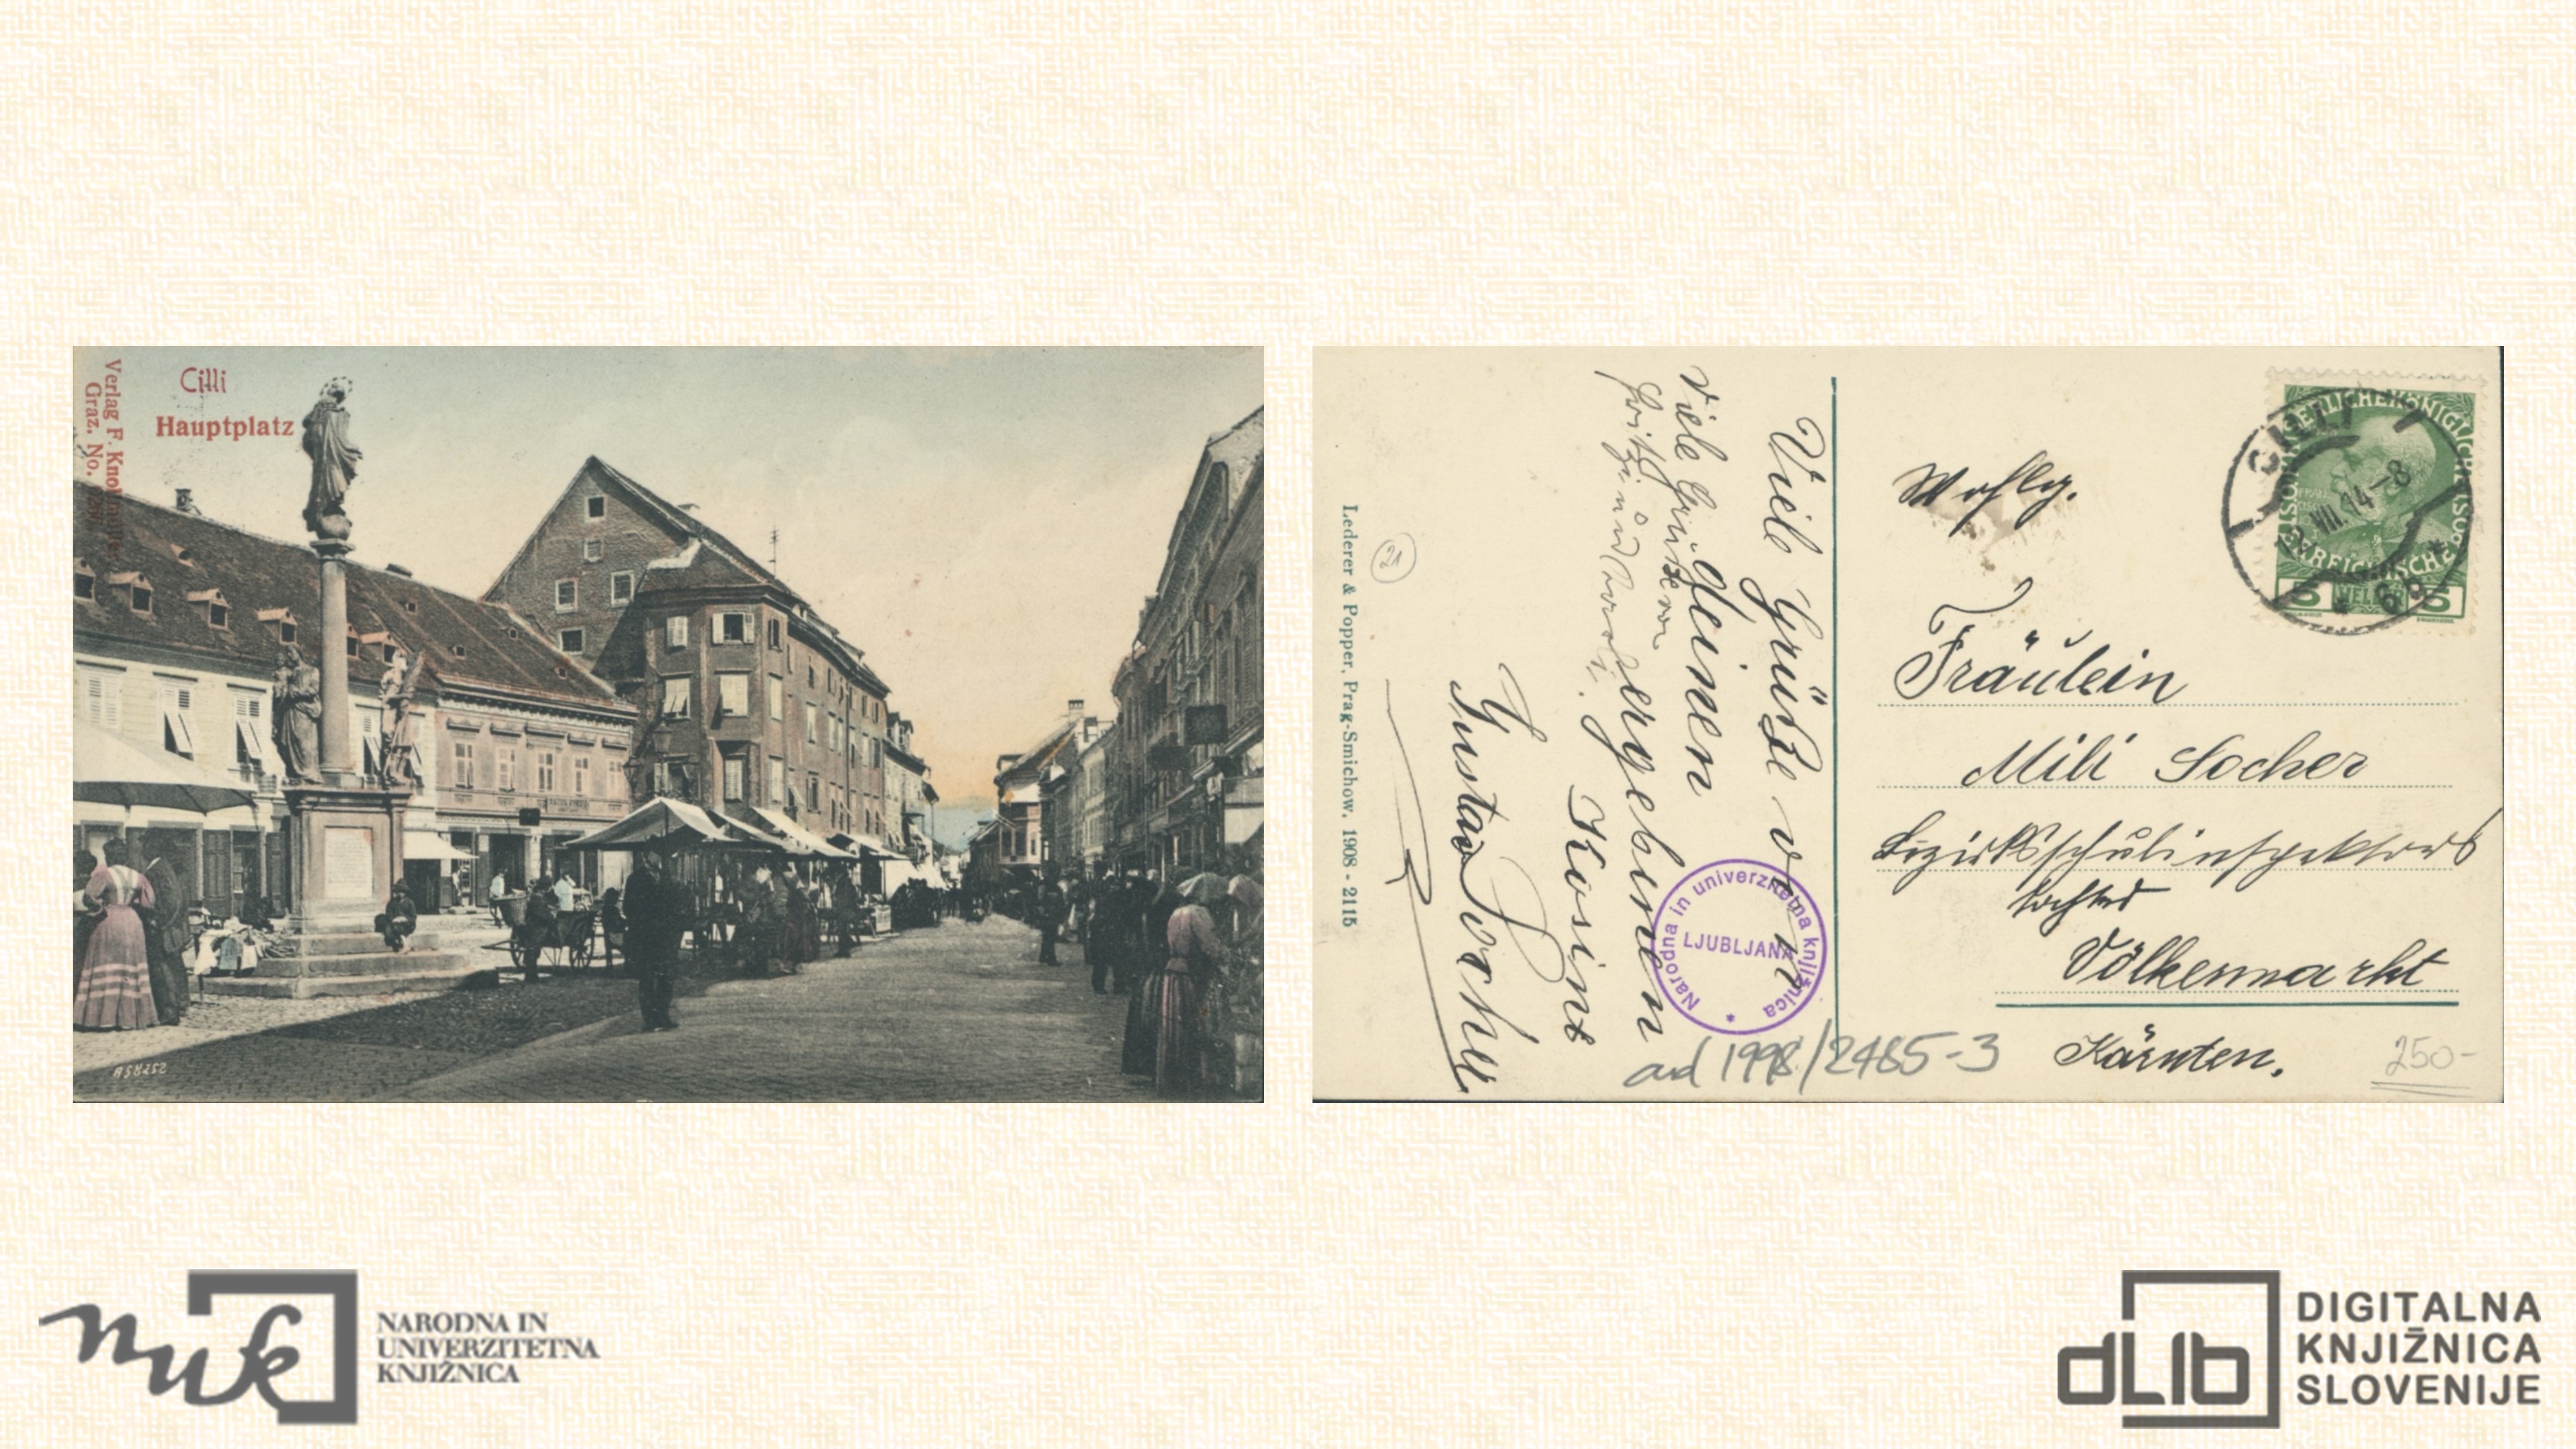 Cilli
Hauptplatz
Verlag F. Knollmüller
Graz. No.
A 58252
Viele Grüße von
deinen
ergebenen
Kosins
Gustav
Viele Grüsse von
Fritzi und
21
Lederer & Popper, Prag-Smichow, 1908 - 2115
Narodna in univerzitetna knjižnica
LJUBLJANA
ad 1998/2465-3
KAISERLICHE KÖNIGLICHE
ÖSTERREICHISCHE
5 HELLER 5
CILLI
VIII. 14-8
Wohlg.
Fräulein
Mili Socher
Bezirksschulinspektors
tochter
Völkermarkt
Kärnten.
250-
nuk
NARODNA IN
UNIVERZITETNA
KNJIŽNICA
dLib
DIGITALNA
KNJIŽNICA
SLOVENIJE